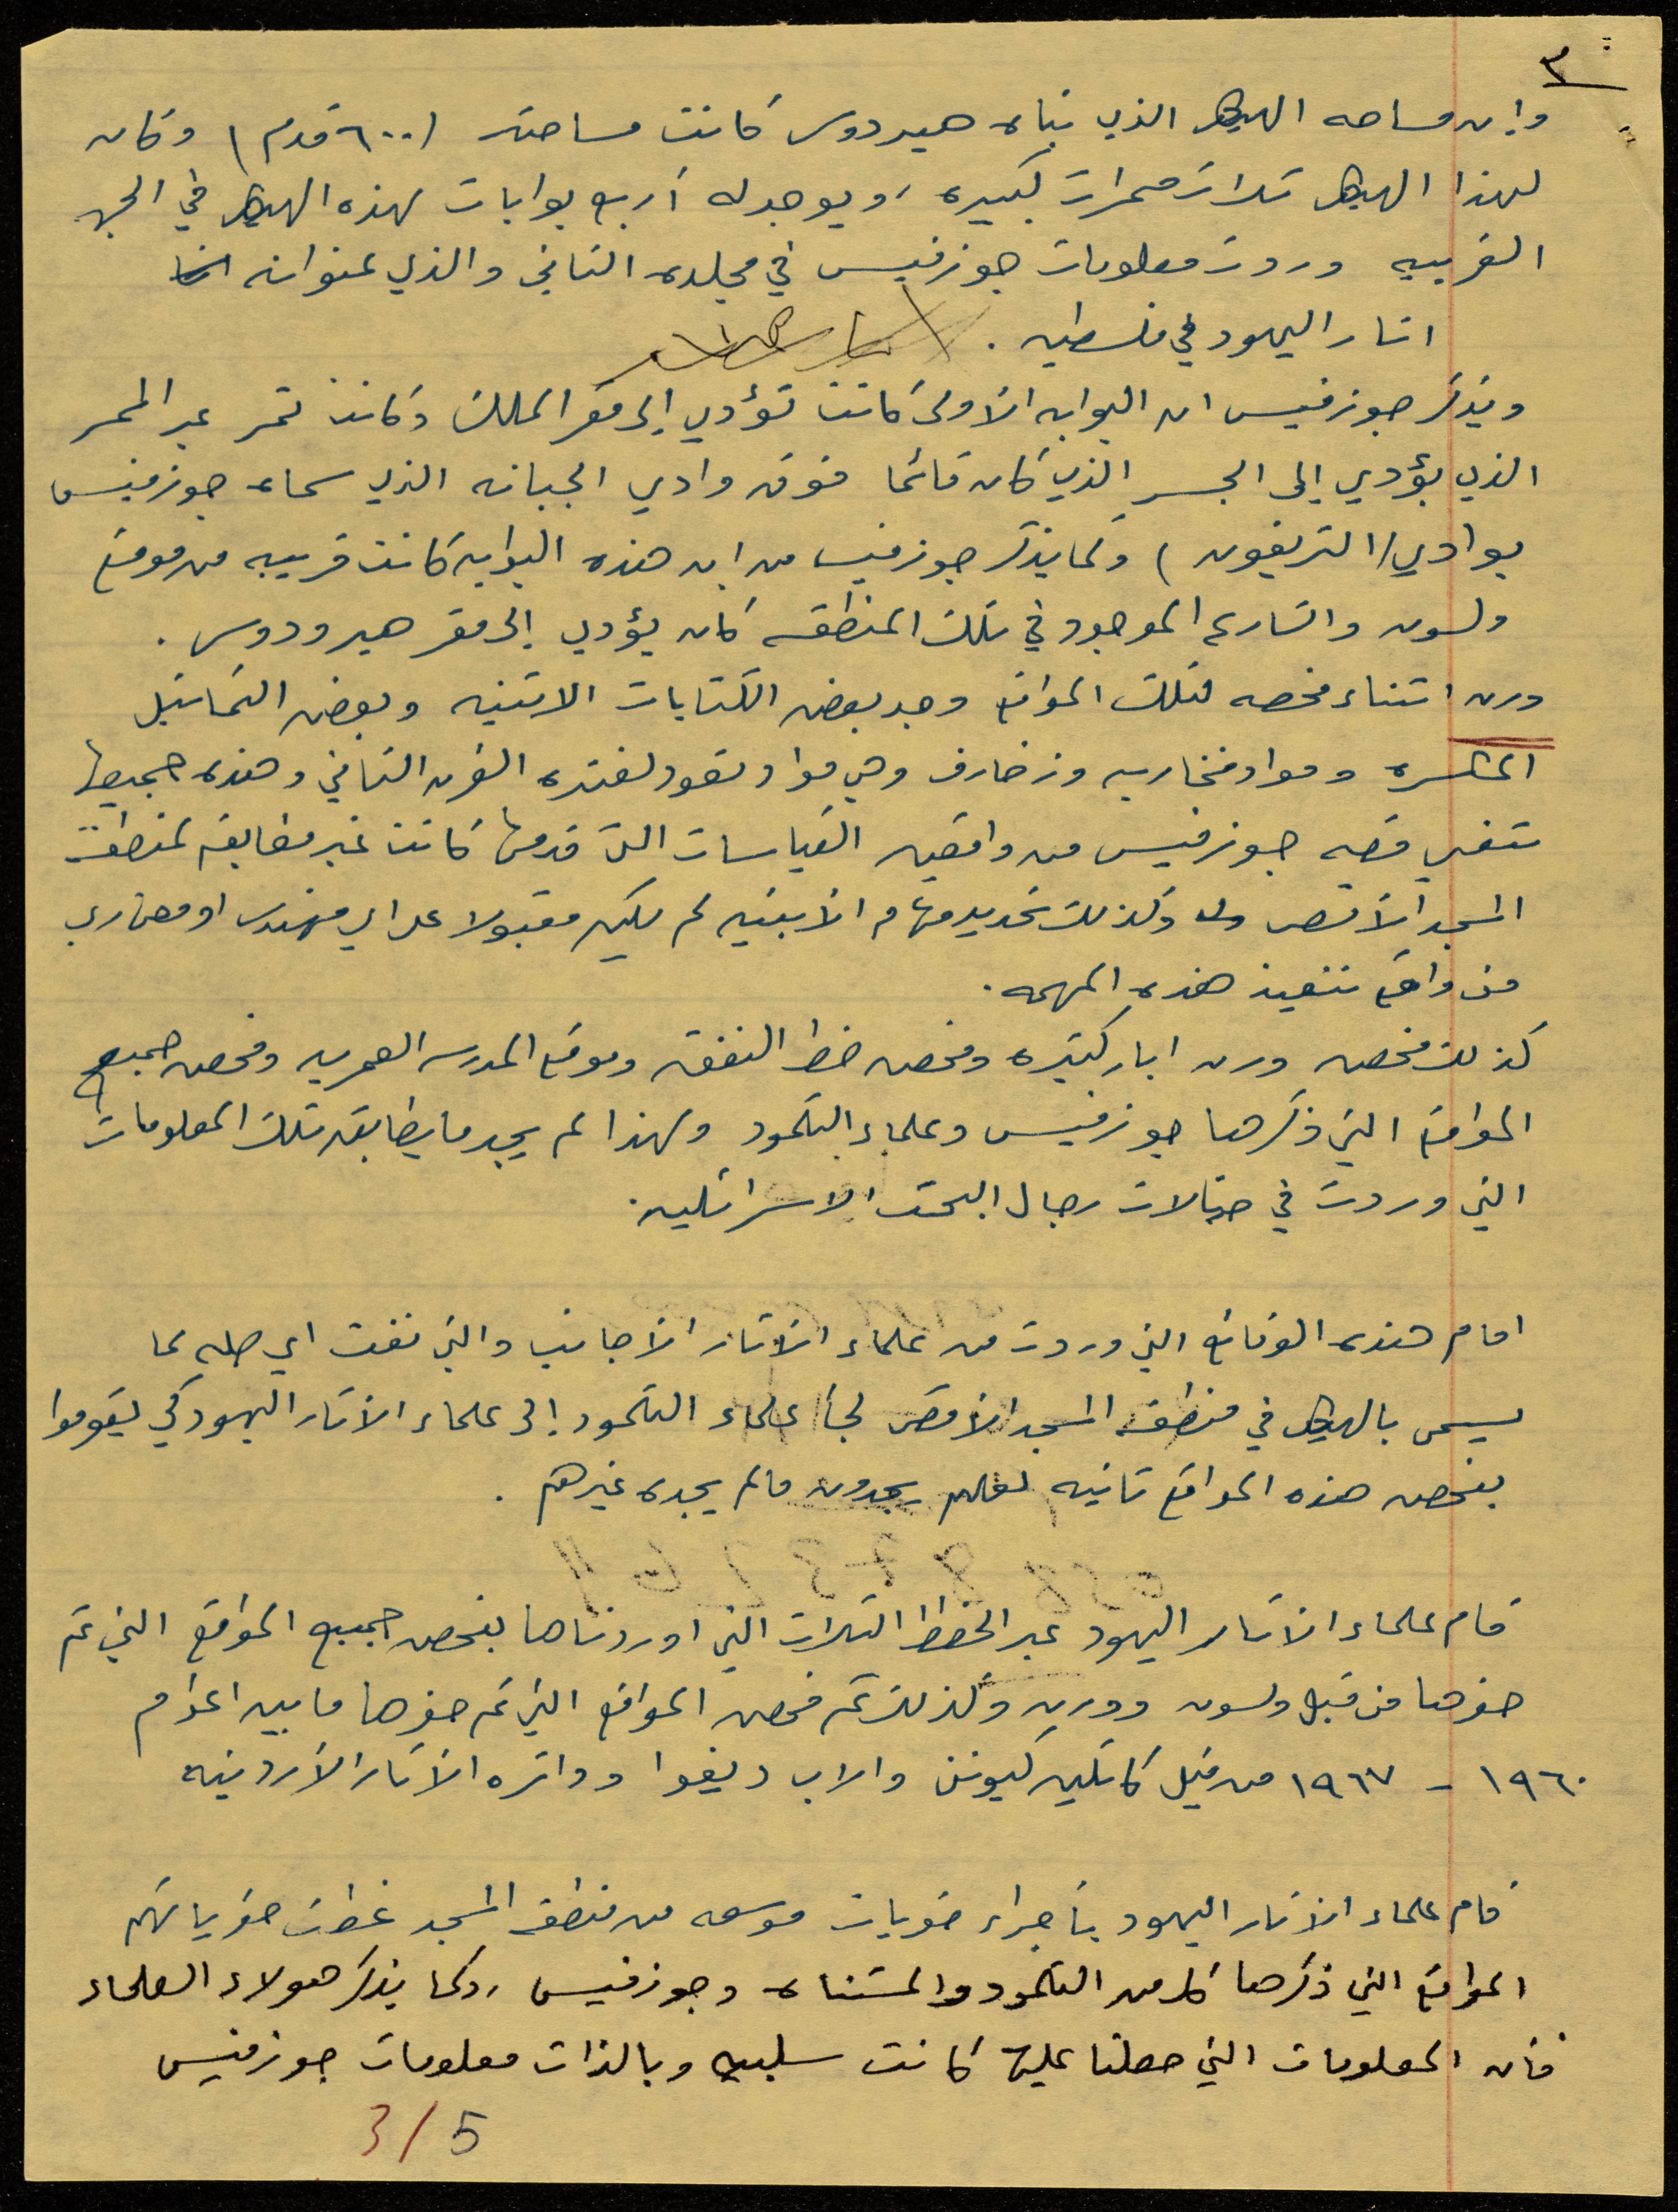 ٣
وان مساحه الهيكل الذي بناه هيردوس كانت مساحته (٦٠٠ قدم) وكان
لهذا الهيكل ثلاث ممرات كبيره، ويوجد له أربع بوابات لهذه الهيكل في الجهه
الغربيه وردت معلومات جوزفيس في مجلده الثاني والذي عنوانه
اثار اليهود في فلسطين .
ويذكر جوزفيس ان البوابه الأولى كانت تؤدي إلى مقر الملك وكانت تمر عبر الممر
الذي يؤدي إلى الجسر الذي كان قائما فوق وادي الجبانه الذي سماه جوزفيس
بوادي (التريفون) وكما يذكر جوزفيس من ان هذه البوابه كانت قريبه من موقع
ولسون والشارع الموجود في تلك المنطقه كان يؤدي إلى مقر هيرودوس .
ورن اثناء فحصه لتلك المواقع وجد بعض الكتابات الاتنيه وبعض التماثيل
المكسره ومواد فخاريه وزخارف وهي مواد تعود لفتره القرن الثاني وهذه جميعها
تنفي قصه جوزفيس من واقعيه القياسات التي قدمها كانت غير مطابقه لمنطقة
المسجد الأقصى وكذلك تحديد مهام الأبنيه لم يكن مقبولا على اي مهندس او معماري
من واقع تنفيذ هذه المهمه .
كذلك فحص ورن ابار كثيره وفحص خط النفق وموقع المدرسه العمريه وفحص جميع
المواقع التي ذكرها جوزفيس وعلماء التلمود ولهذا لم يجد ما يطابق تلك المعلومات
التي وردت في خيالات رجال البحث الاسرائيليه .
امام هذه الوقائع التي وردت من علماء الأثار الأجانب والتي نفت اي صله لما
يسمى بالهيكل في منطقة المسجد الأقصى لجأ علماء التلمود إلى علماء الأثار اليهود كي يقوموا
بفحص هذه المواقع ثانيه لعلهم يجدون مالم يجده غيرهم .
قام علماء الأثار اليهود عبر الخطط الثلاث التي اوردناها بفحص جميع المواقع التي تم
حفرها من قبل ولسون وورين وكذلك تم فحص المواقع التي تم حفرها ما بين اعوام
١٩٦٠ - ١٩٦٧ من قبل كاتلين كينون والاب ديفوا ودائره الأثار الأردنيه
قام علماء الأثار اليهود بأجراء حفريات موسعه من منطقة المسجد غطت حفرياتهم
المواقع التي ذكرها كل من التلمود والمشناه وجوزفيس ، وكما يذكر هولاء العلماء
فأن المعلومات التي حصلنا عليها كانت سلبيه وبالذات معلومات جوزفيس
3/5